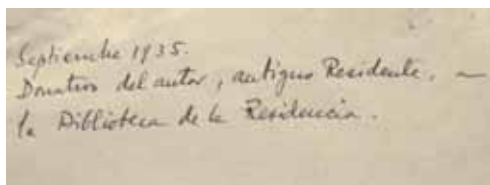 Septiembre 1935.
Donativo del autor, antiguo Residente, a
la Biblioteca de la Residencia.